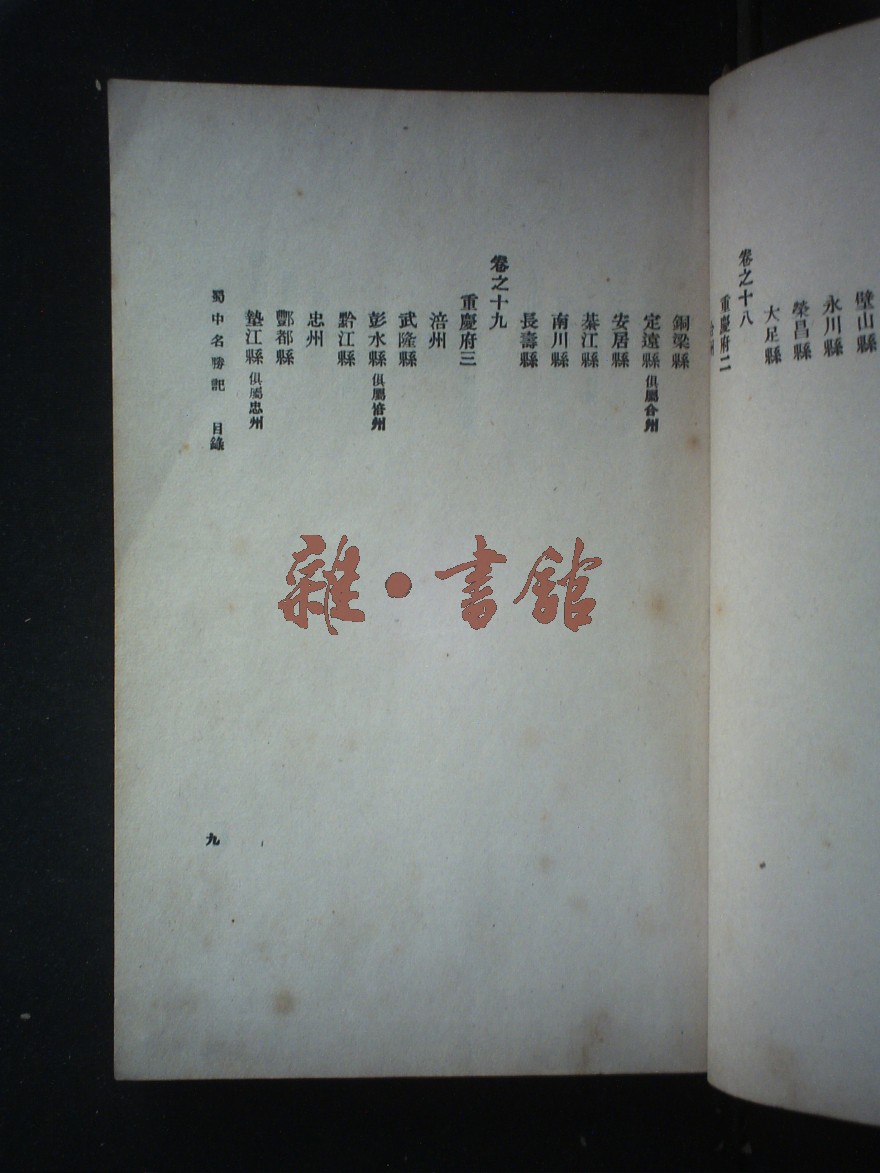 壁山縣
永川縣
榮昌縣
大足縣
卷之十八
重慶府二
銅梁縣
定遠縣 俱屬合州
安居縣
綦江縣
南川縣
長壽縣
卷之十九
重慶府三
涪州
武隆縣
彭水縣 俱屬涪州
黔江縣
忠州
酆都縣
墊江縣 俱屬忠州
蜀中名勝記 目錄
九
雜·書館